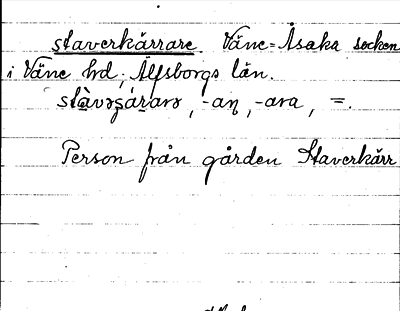 staverkärrare. Väne-Åsaka socken
i Väne hd, Älfsborgs län.
stàvəʂárarə, -aɳ, -ara, =.
Person från gården Staverkärr